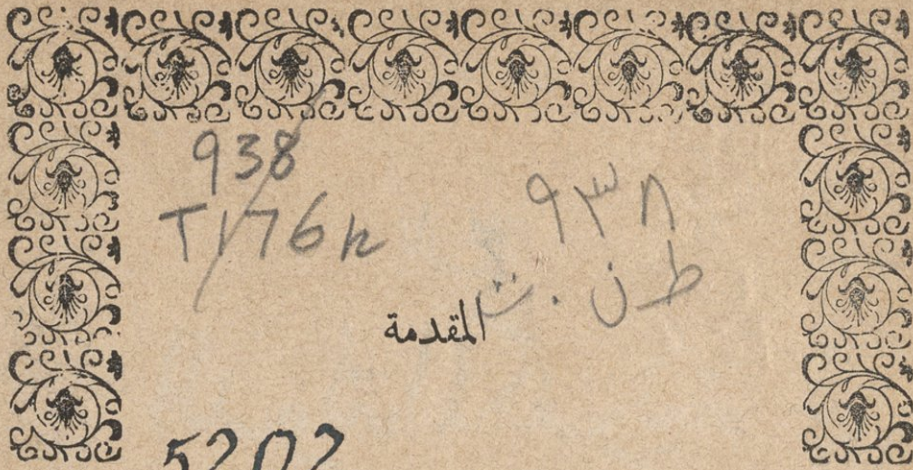 938
T176h
٩٣٨
ط ن . ت
المقدمة
5202